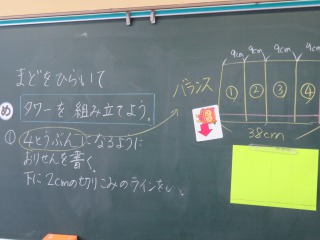 まどをひらいて
め タワーを組み立てよう。
① 4とうぶんになるように
おりせんを書く。
下に2cmの切りこみのラインを
バランス
9cm 9cm 9cm 9cm
① ② ③ ④
38cm